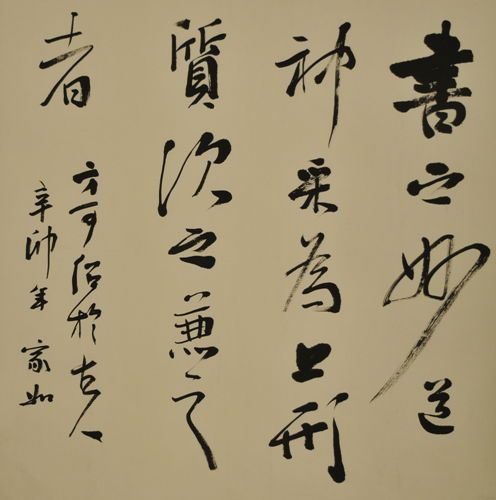 書之妙道
神采為上形
質次之兼之
者
方可紹於古人
辛卯年 家如